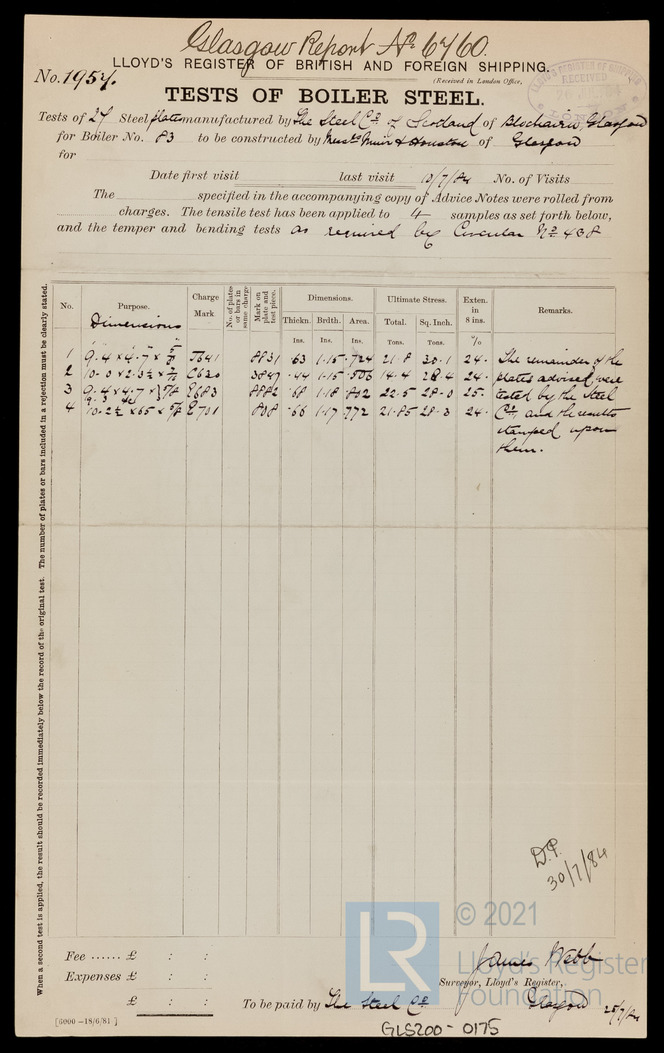 Glasgow Report No 6760.
LLOYD'S REGISTER OF BRITISH AND FOREIGN SHIPPING.
No. 1957.
(Received in London Office,
LLOYD'S REGISTER OF SHIPPING
RECEIVED
LONDON
TESTS OF BOILER STEEL.
Tests of 27 Steel plates manufactured by The Steel Co. of Scotland of Blochairn, Glasgow
for Boiler No. 83 to be constructed by Messrs Muir & Houston of Glasgow
for
Date first visit last visit 10/7/84 No. of Visits
The specified in the accompanying copy of Advice Notes were rolled from
charges. The tensile test has been applied to 4 samples as set forth below,
and the temper and bending tests as required by Circular No 438
When a second test is applied, the result should be recorded immediately below the record of the original test. The number of plates or bars included in a rejection must be clearly stated.
No. Purpose. Charge Mark No. of plates or bars in same charge Mark on plate and test piece. Dimensions. Ultimate Stress. Exten. in 8 ins. Remarks.
Dimensions
Thickn. Brdth. Area. Total. Sq. Inch.
Ins. Ins. Ins. Tons. Tons. %
1 9.4 × 4.7 × 8831 .63 1.15 .724 21.8 30.1 24. The remainder of the
2 10.0 × 2.3½ × 3847 .44 1.15 .506 14.4 28.4 24. plates advised were
3 9.4 × 4.7 × 8882 .68 1.18 .802 22.5 28.0 25. tested by the Steel
4 10.2½ × 65 × 5/8 .66 1.17 .772 21.85 28.3 24. Co, and the results
stamped upon
them.
D.P.
30/7/84
LR
© 2021
Lloyd's Register
Foundation
Fee ...... £ : :
Expenses £ : :
£ : :
James Webb
Surveyor, Lloyd's Register,
To be paid by The Steel Co. Glasgow 25/7/84
[6000—18/6/81]
GLS200-0175